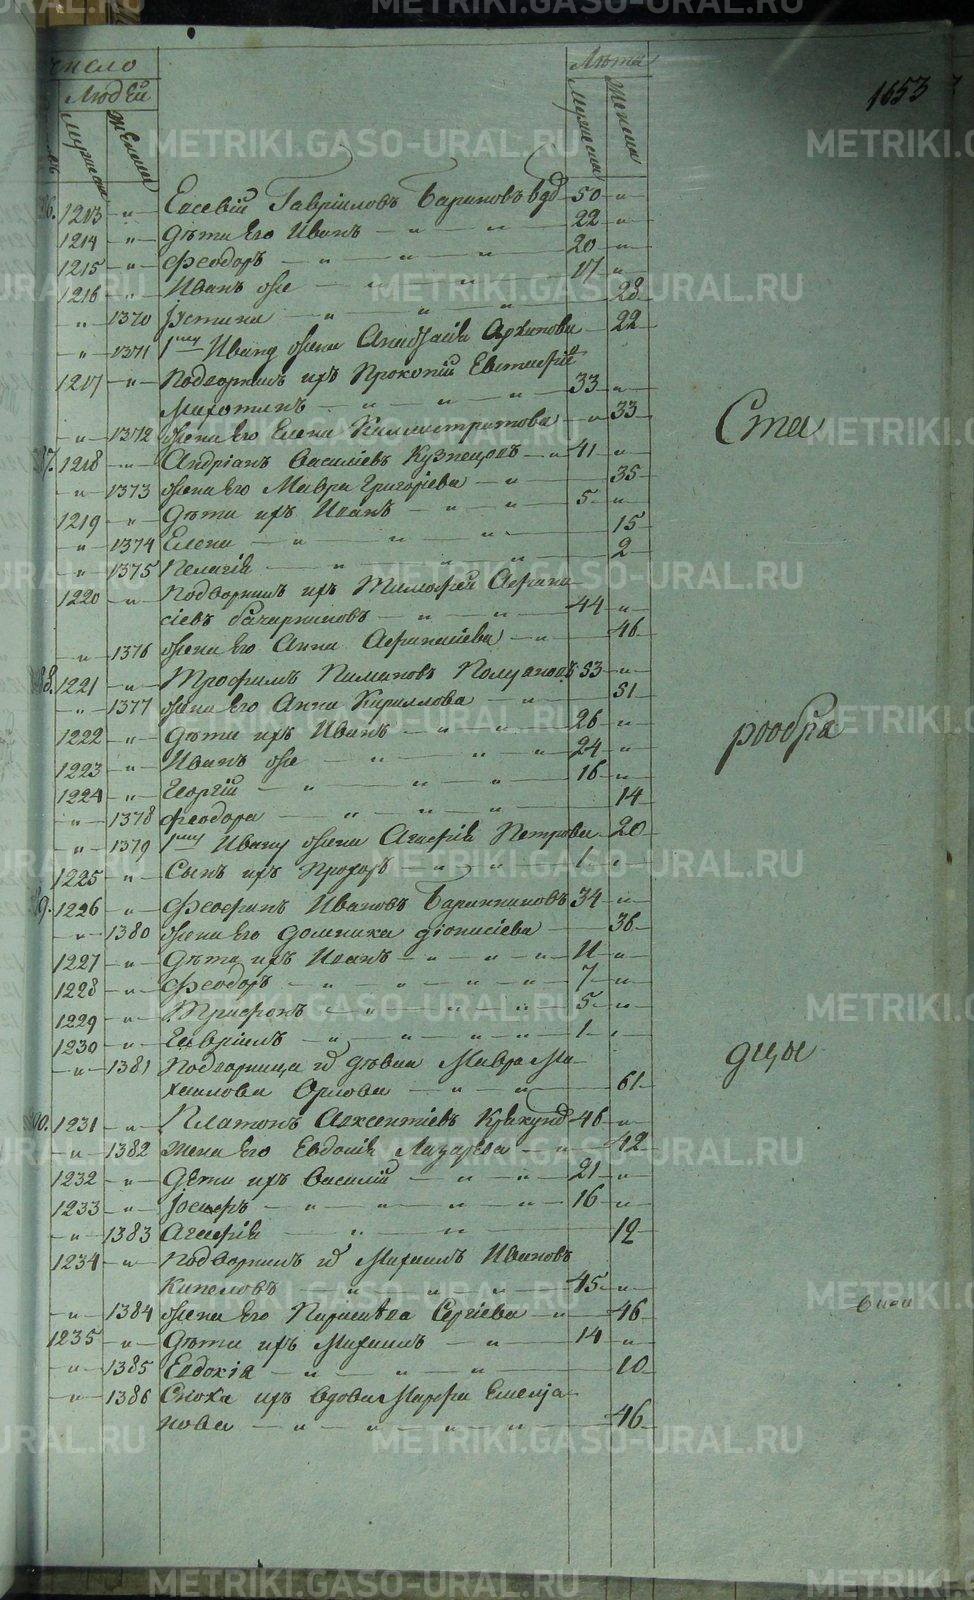 число
Людей
Мужеска
Женска
Лѣта
Мужеска
Женска
1653
1213 „ Евсевій Гавріиловъ Бариновъ вдв 50 „
1214 „ Дѣти его Иванъ „ „ 22 „
1215 „ Феодоръ „ „ „ 20 „
1216 „ Иванъ же „ „ 17 „
„ 1370 Іустина „ „ „ 28
„ 1371 1му Ивану жена Анастасія Архипова 22
1217 „ Подворникъ ихъ Прокопій Евстафіе
„ „ „ 33 „
„ 1372 жена его Елена Каллистратова „ 33
87. 1218 „ Андріанъ Василіевъ Кузнецовъ „ 41 „
„ 1373 жена его Мавра Григоріева „ 35
1219 „ Дѣти ихъ Иванъ „ „ 5 „
„ 1374 Елена „ „ „ 15
„ 1375 Пелагія „ „ „ 2
1220 „ Подворникъ ихъ Тимофей Афана
сіевъ „ „ 44 „
„ 1376 жена его Анна Афанасіева „ 46
88. 1221 „ Трофимъ Пимановъ Полуяновъ 53 „
„ 1377 жена его Анна Кириллова „ „ 51
1222 „ Дѣти ихъ Иванъ „ „ 26 „
1223 „ Иванъ же „ „ „ 24 „
1224 „ Георгій „ „ „ 16 „
„ 1378 Феодора „ „ „ 14
„ 1379 1му Ивану жена Агафія Петрова 20
1225 „ Сынъ ихъ Прохоръ „ „ 1 „
89. 1226 „ Феофанъ Ивановъ Баранниковъ 34 „
„ 1380 жена его Домника Діонисіева 36
1227 „ Дѣти ихъ Иванъ „ „ „ 11 „
1228 „ Феодоръ „ „ „ „ 7 „
1229 „ Трифонъ „ „ „ „ 5 „
1230 „ Гавріилъ „ „ „ „ 1 „
„ 1381 Подворница их дѣвка Мавра Ми
хаилова Орлова „ „ 61
90. 1231 „ Платонъ Авксентіевъ 46 „
„ 1382 жена его Евдокія Лазарева „ 42
1232 „ Дѣти ихъ Василій „ „ 21 „
1233 „ Іосифъ „ „ „ „ 16 „
„ 1383 Агафія „ „ 12
1234 „ Подворникъ их Михаилъ Ивановъ
Кипеловъ „ „ „ 45 „
„ 1384 жена его Параскева Сергіева „ 46
1235 „ Дѣти ихъ Михаилъ „ 14 „
„ 1385 Евдокія „ „ „ 10
„ 1386 Сноха ихъ вдова Марфа Емелія
нова „ „ „ „ 46
Ста
рообря
дцы
METRIKI.GASO-URAL.RU